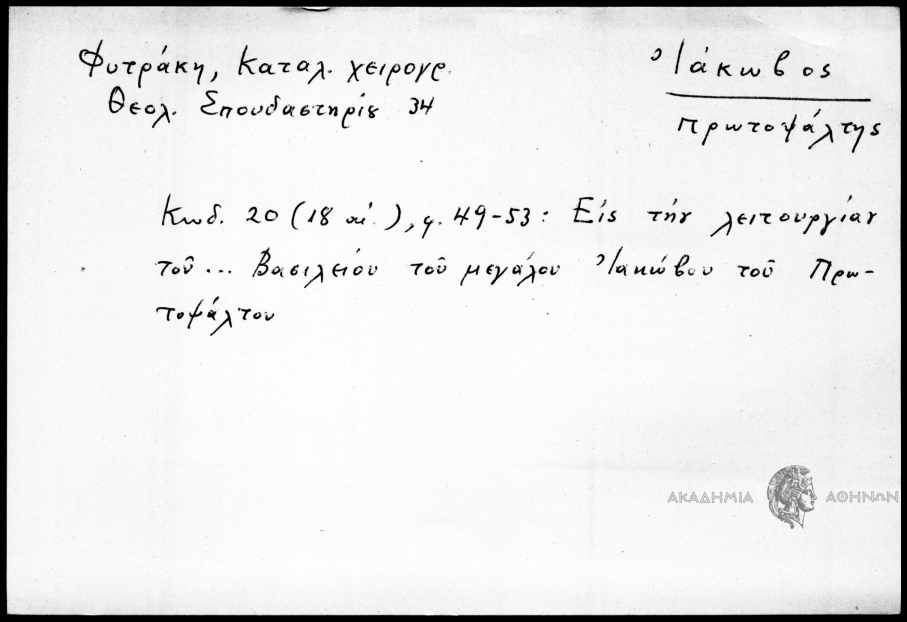 Φυτράκη, Καταλ. χειρογρ.
Θεολ. Σπουδαστηρίȣ 34
Ἰάκωβος
Πρωτοψάλτης
Κωδ. 20 (18 αἰ.), φ. 49-53: Εἰς τὴν λειτουργίαν
τοῦ ... Βασιλείου τοῦ μεγάλου Ἰακώβου τοῦ Πρω-
τοψάλτου
ΑΚΑΔΗΜΙΑ ΑΘΗΝΩΝ